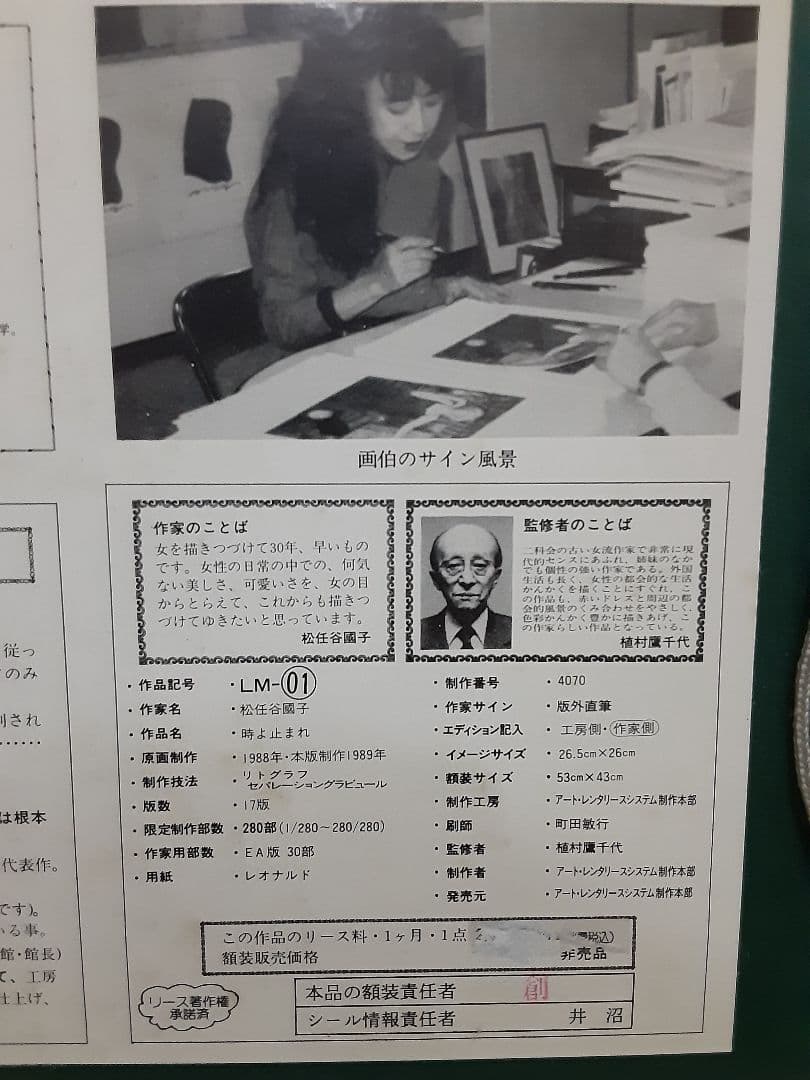 学。
従っ
てのみ
刊され
……
は根本
代表作。
です)。
いる事。
館・館長)
て、工房
仕上げ、
画伯のサイン風景
作家のことば
女を描きつづけて30年、早いもの
です。女性の日常の中での、何気
ない美しさ、可愛いさを、女の目
からとらえて、これからも描きつ
づけてゆきたいと思っています。
松任谷國子
監修者のことば
二科会の古い女流作家で非常に現
代的センスにあふれ、姉妹のなか
でも個性の強い作家である。外国
生活も長く、女性の都会的な生活
かんかくを描くことにすぐれ、こ
の作品も、赤いドレスと周辺の都
会的風景のくみ合わせをやさしく、
色彩かんかく豊かに描きあげ、こ
の作家らしい作品となっている。
植村鷹千代
・作品記号 ・LM-01
・作家名 ・松任谷國子
・作品名 ・時よ止まれ
・原画制作 ・1988年・本版制作1989年
・制作技法 ・リトグラフ
セパレーショングラビュール
・版数 ・17版
・限定制作部数 ・280部(1/280~280/280)
・作家用部数 ・EA版 30部
・用紙 ・レオナルド
・制作番号 ・4070
・作家サイン ・版外直筆
・エディション記入 ・工房側・作家側
・イメージサイズ ・26.5cm×26cm
・額装サイズ ・53cm×43cm
・制作工房 ・アート・レンタリースシステム制作本部
・刷師 ・町田敏行
・監修者 ・植村鷹千代
・制作者 ・アート・レンタリースシステム制作本部
・発売元 ・アート・レンタリースシステム制作本部
この作品のリース料・1ヶ月・1点 税込)
額装販売価格 非売品
リース著作権
承諾済
本品の額装責任者 創
シール情報責任者 井沼